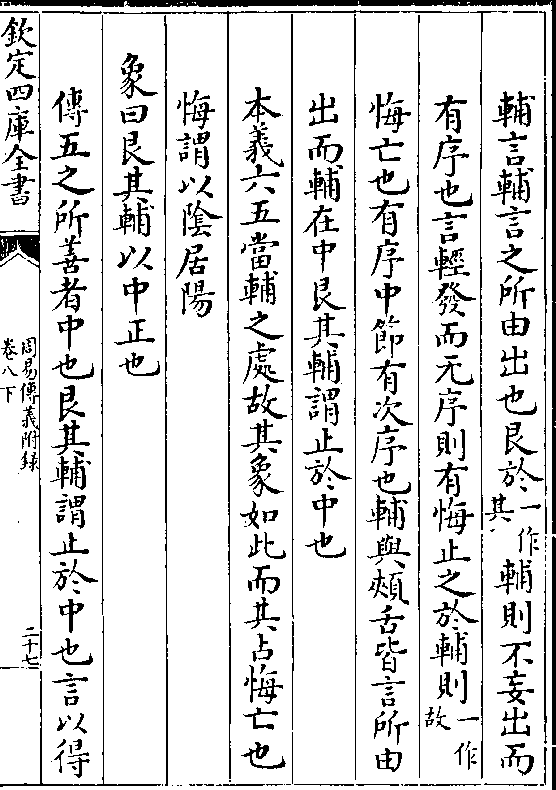 輔言輔言之所由出也艮於一作其輔則不妄出而
有序也言輕發而无序則有悔止之於輔則一作故
悔亡也有序中節有次序也輔與頰舌皆言所由
出而輔在中艮其輔謂止於中也
本義六五當輔之處故其象如此而其占悔亡也
悔謂以陰居陽
象曰艮其輔以中正也
傳五之所善者中也艮其輔謂止於中也言以得
欽定四庫全書
周易傳義附録
卷八下
二十七